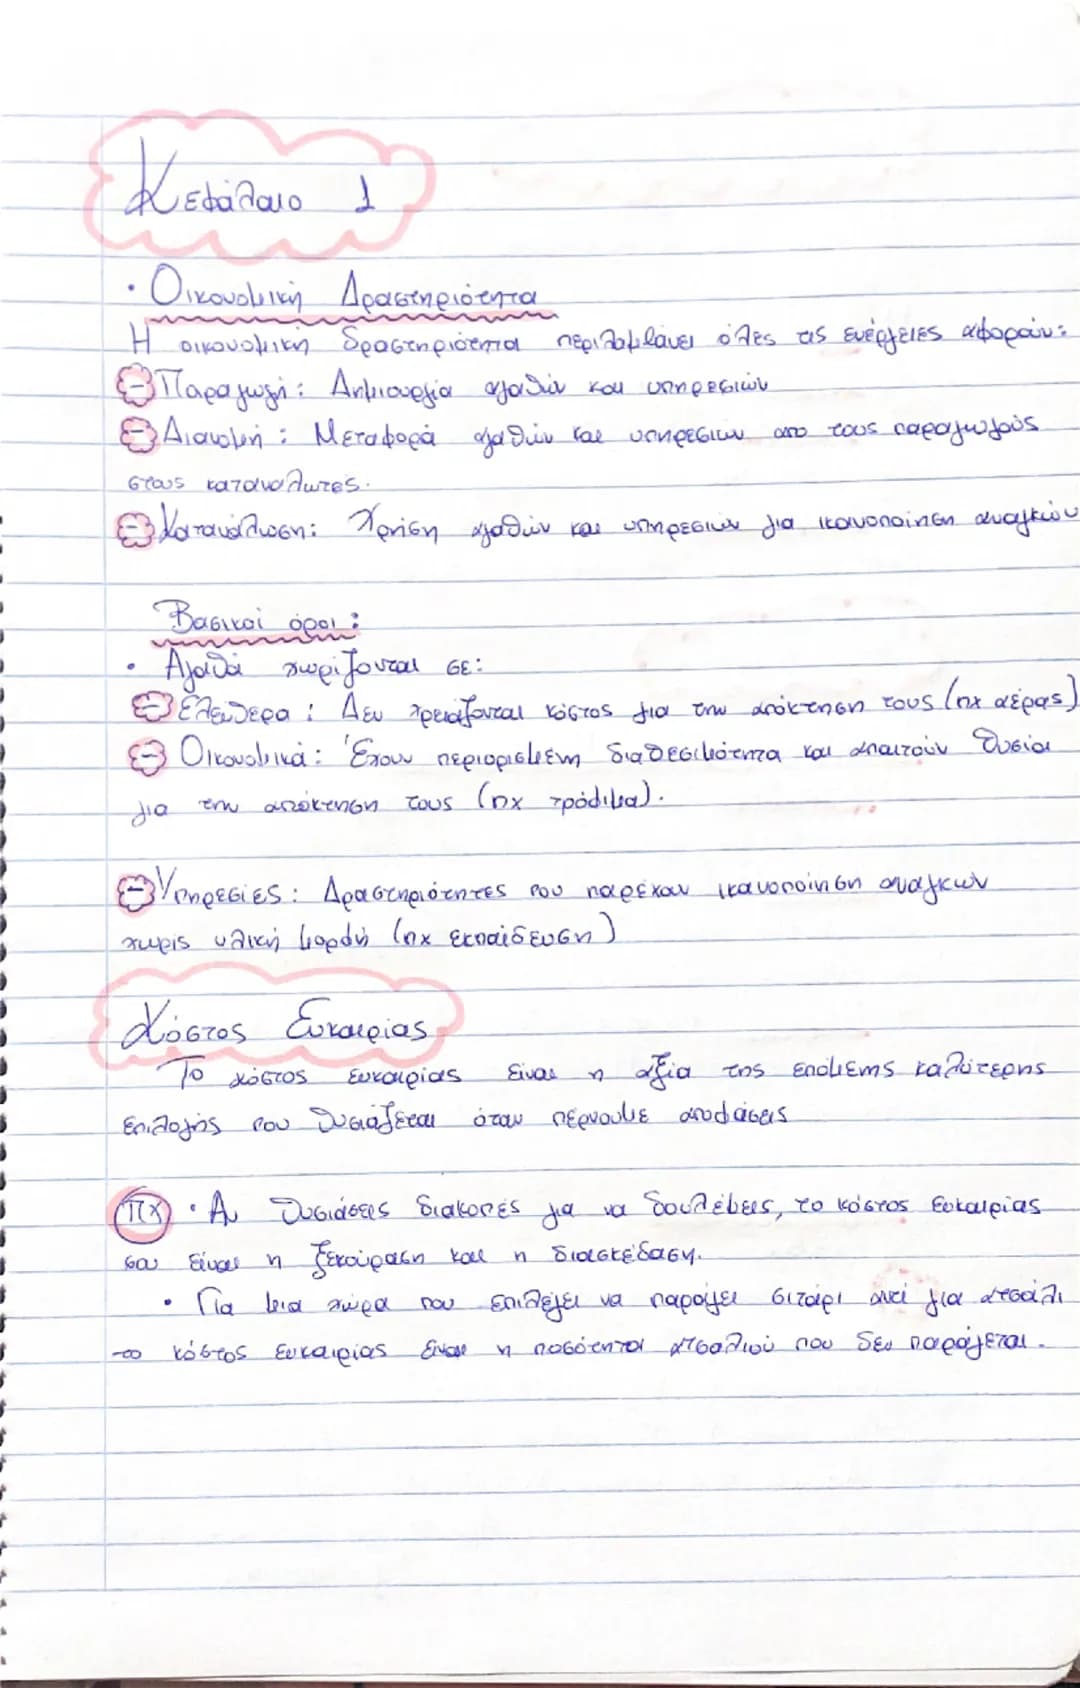 Κεφάλαιο 1
• Οικονομική Δραστηριότητα
Η οικονομική δραστηριότητα περιλαμβάνει όλες τις ενέργειες αφορούν:
- Παραγωγή: Δημιουργία αγαθών και υπηρεσιών
- Διανομή: Μεταφορά αγαθών και υπηρεσιων απο τους παραγωγούς
στους καταναλωτές.
- Κατανάλωση: Χρήση αγαθών και υπηρεσιών για ικανοποίηση αναγκών
Βασικοί όροι:
• Αγαθά χωρίζονται σε:
- Ελεύθερα: Δεν χρειάζονται κόστος για την απόκτηση τους (πχ αέρας)
- Οικονομικά: Έχουν περιορισμένη διαθεσιμότητα και απαιτούν θυσία
για την απόκτηση τους (πχ τρόφιμα).
- Υπηρεσίες: Δραστηριότητες που παρέχουν ικανοποίηση αναγκών
χωρίς υλική μορφή (πχ εκπαίδευση)
Κόστος Ευκαιρίας
Το κόστος ευκαιρίας είναι η αξία της επόμενης καλύτερης
επιλογής που θυσιάζεται όταν πέρνουμε αποφάσεις
πχ • Αν θυσιάσεις διακοπές για να δουλέψεις, το κόστος ευκαιρίας
σου είναι η ξεκούραση και η διασκέδαση.
• Για μια χώρα που επιλέγει να παράγει σιτάρι αντί για ατσάλι
το κόστος ευκαιρίας είναι η ποσότητα ατσαλιού που δεν παράγεται.